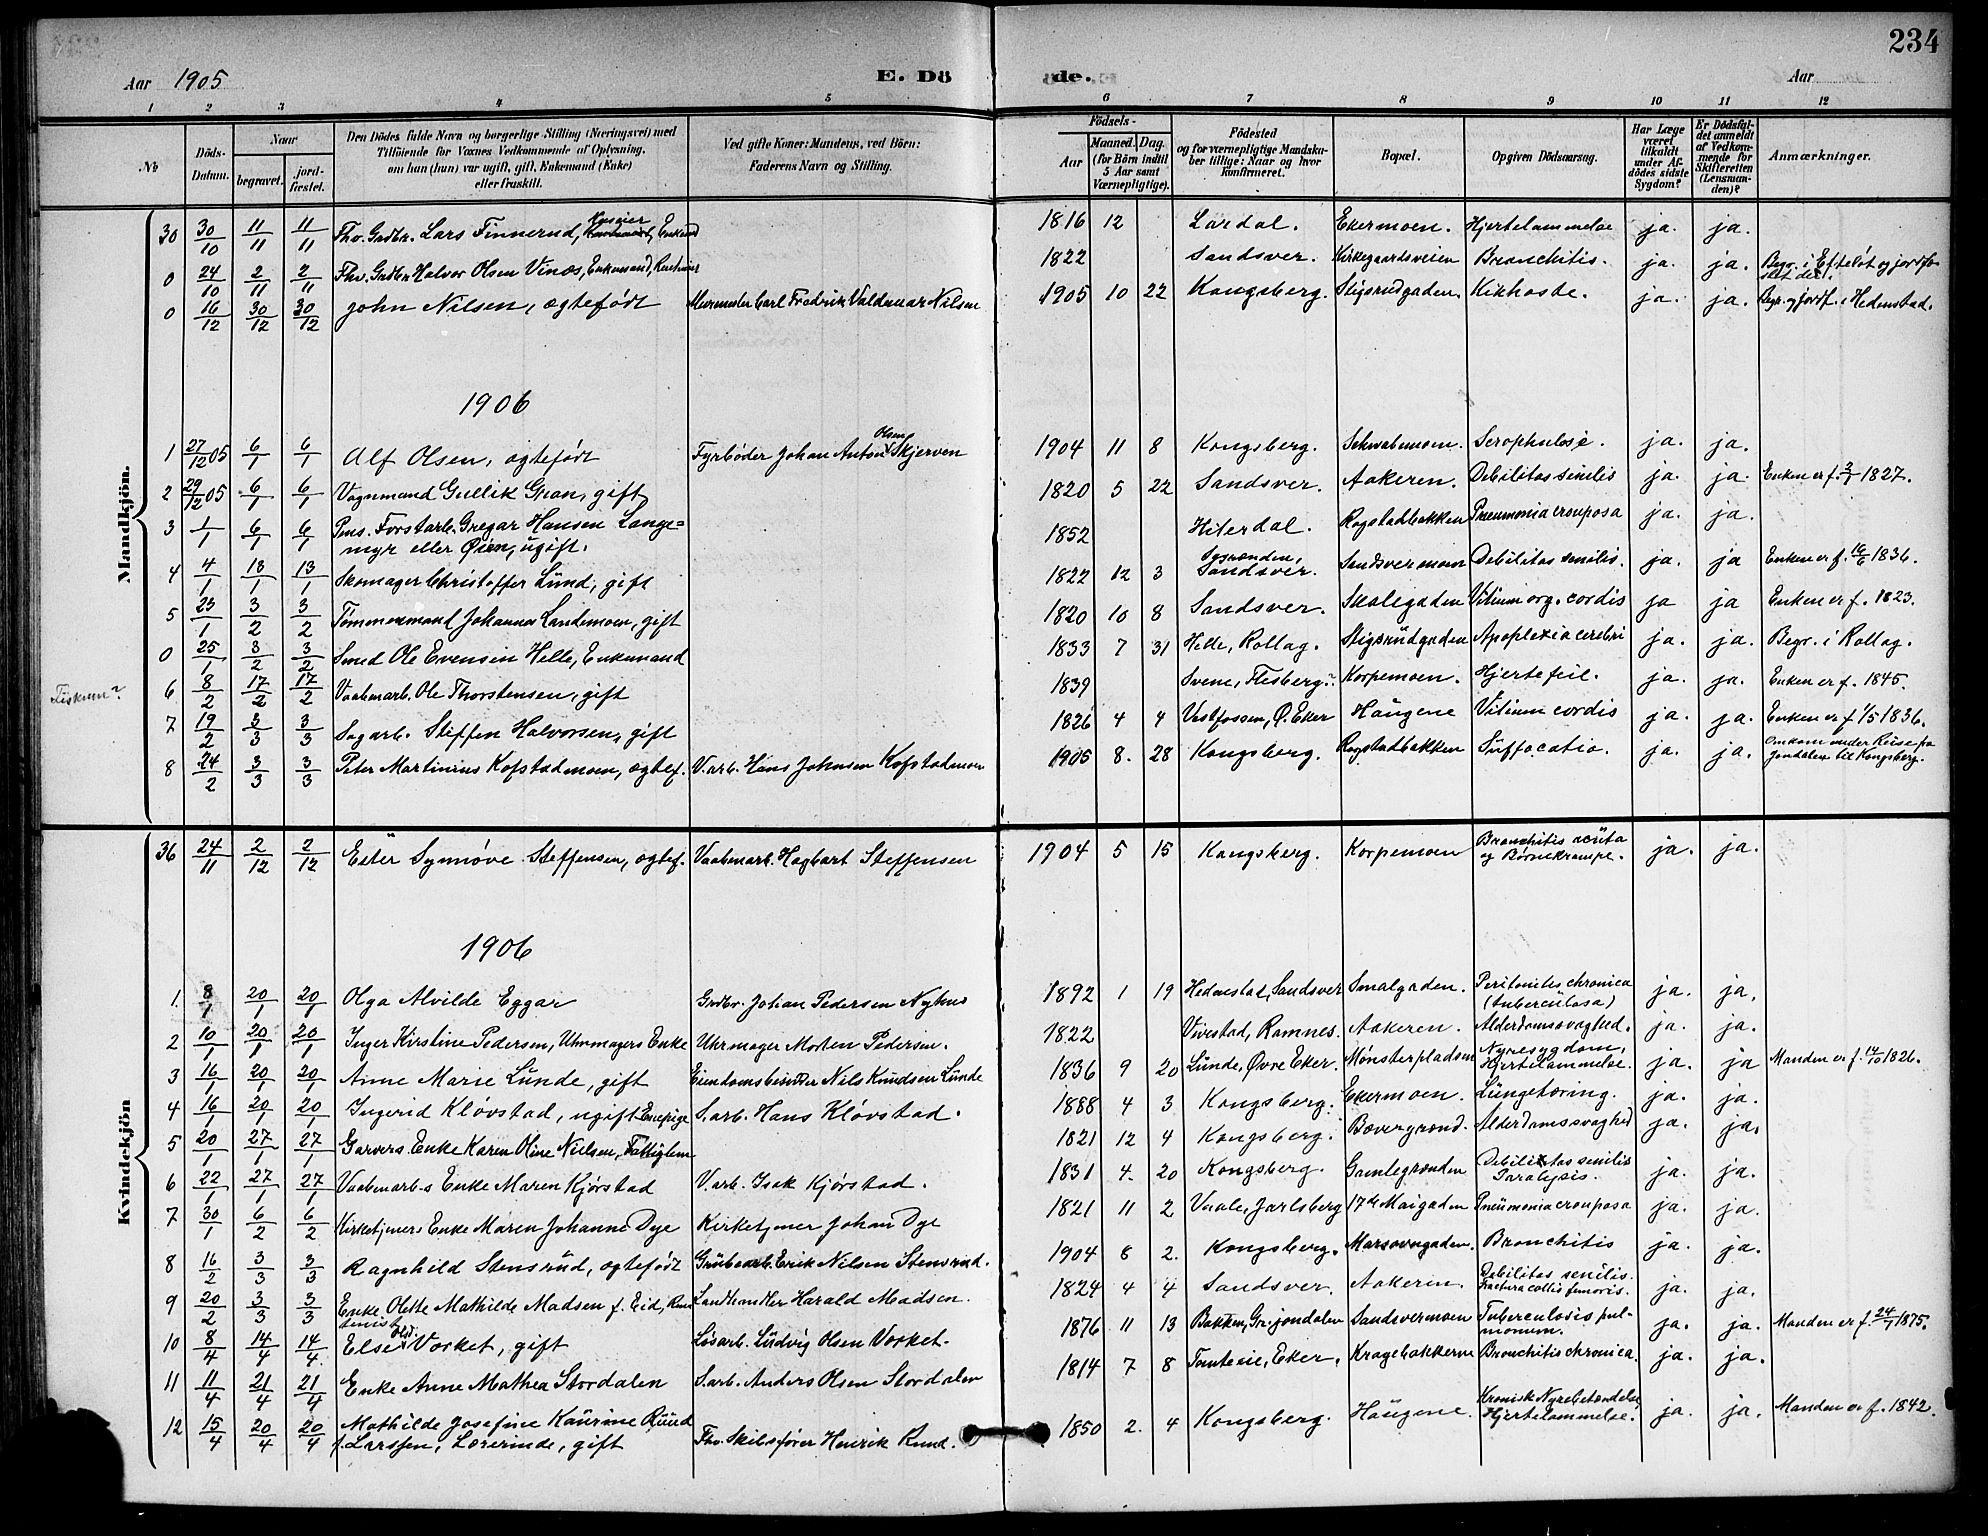 234
Aar 1905
E. Dö
de.
Aar
1 2 3 4 5 6 7 8 9 10 11 12
№
Döds-Datum.
Naar
begravet.
jord-fæstet.
Den Dödes fulde Navn og borgerlige Stilling (Næringsvei) med
Tilföiende for Voxnes Vedkommende af Oplysning,
om han (hun) var ugift, gift, Enkemand (Enke)
eller fraskilt.
Ved gifte Koner: Mandens, ved Börn:
Faderens Navn og Stilling.
Födsels-
Aar
Maaned. Dag.
(for Börn indtil
5 Aar samt
Værnepligtige).
Födested
og for værnepligtige Mandska-
ber tillige: Naar og hvor
konfirmeret.
Bopæl.
Opgiven Dödsaarsag.
Har Læge
været
tilkaldt
under Af-
dödes sidste
Sygdom?
Er Dödsfal-
det anmeldt
af Vedkom-
mende for
Skifteretten
(Lensman-
den)?
Anmærkninger.
Mandkjön.
30 30/10 11/11 11/11 Fhv. Grdbr. Lars Finnerud, Enkemd 1816 12 Lardal. Ekermoen. Hjertelammelse ja. ja.
0 24/10 2/11 2/11 Fhv. Grdbr. Halvor Olsen Vinæs, Enkemand, Rentenier 1822 Sandsver. Kirkegaardsveien Bronchitis. ja. ja. Begr. i Efteløt og jordfæstet der.
0 16/12 30/12 30/12 John Nilsen, ægtefødt Murmester Carl Fredrik Valdemar Nilsen 1905 10 22 Kongsberg. Stigsrudgaden. Kikhoste. ja. ja. Begr. og jordf. i Hedenstad.
1906
1 27/12 05 6/1 6/1 Alf Olsen, ægtefødt Fyrbøder Johan Anton Olsen Skjerven 1904 11 8 Kongsberg. Schwabemoen. Scrophulose. ja. ja.
2 29/12 05 6/1 6/1 Vognmand Gullik Gran, gift 1820 5 22 Sandsver. Aakeren. Debilitas senilis ja. ja. Enken er f. 3/7 1827.
3 1/1 6/1 6/1 Pens. Forstarb. Gregar Hansen Lange=
myr eller Øien, ugift. 1852 Hiterdal. Rogstadbakken Pneumonia crouposa ja. ja.
4 4/1 13/1 13/1 Skomager Christoffer Lund, gift 1822 12 3 Sandsver. Sandsvermoen Debilitas senilis. ja. ja Enken er f. 16/6 1836.
5 23/1 3/2 3/2 Tømmermand Johannes Landemoen, gift 1820 10 8 Sandsver. Skolegaden Vitium org. cordis ja ja Enken er f. 1823.
0 25/1 3/2 3/2 Smed Ole Evensen Helle, Enkemand 1833 7 31 Helle, Rollag. Stigsrudgaden Apoplexia cerebri ja. ja. Begr. i Rollag.
Fiskum? 6 8/2 17/2 17/2 Vaabenarb. Ole Thorstensen, gift 1839 Svene, Flesberg? Korpemoen. Hjertefeil. ja. ja. Enken er f. 1845.
7 19/2 3/3 3/3 Sagarb. Steffen Halvorsen, gift 1826 4 4 Vestfossen, Ø. Eker Haugene Vitium cordis ja. ja. Enken er f. 1/5 1836.
8 24/2 3/3 3/3 Peter Martinius Kofstadmoen, ægtef. V.arb. Hans Johnsen Kofstadmoen 1905 8. 28 Kongsberg. Rogstadbakken Suffocatio. ja. ja. Omkom under Reise fra
Jondalen til Kongsberg.
Kvindekjön
36 24/11 2/12 2/12 Ester Synnøve Steffensen, ægtef. Vaabenarb. Hagbart Steffensen 1904 5 15 Kongsberg. Korpemoen Bronchitis acuta
og Børnekrampe. ja. ja.
1906
1. 8/1 20/1 20/1 Olga Alvilde Eggar Grdbr. Johan Pedersen Nyhus 1892 1 19 Hedenstad, Sandsver Smalgaden. Peritonitis chronica
(tuberculosa) ja. ja.
2 10/1 20/1 20/1 Inger Kirstine Pedersen, Uhrmagers Enke Uhrmager Morten Pedersen. 1822 Vivestad, Ramnes. Aakeren. Alderdomssvaghed. ja. ja.
3 16/1 20/1 20/1 Anne Marie Lunde, gift Eiendomsbesidder Nils Knudsen Lunde 1836 9 20 Lunde, Øvre Eker. Mønsterpladsen Nyresygdom,
Hjertelammelse. ja. ja Manden er f. 14/10 1826.
4 16/1 20/1 20/1 Ingerid Kløvstad, ugift Enepige S.arb. Hans Kløvstad. 1888 4 3 Kongsberg. Ekermoen. Lungetæring. ja. ja.
5 20/1 27/1 27/1 Garvers Enke Karen Oline Nielsen, Fattiglem 1821 12 4 Kongsberg. Bævergrænd. Alderdomssvaghed ja. ja.
6 22/1 27/1 27/1 Vaabenarb.s Enke Maren Kjørstad V.arb. Isak Kjørstad. 1831 4. 20 Kongsberg. Gamlegrænden Debilitas senilis
Paralysis. ja. ja.
7 30/1 6/2 6/2 Kirketjeners Enke Maren Johanne Dye Kirketjener Johan Dye 1821 11 2 Vaale, Jarlsberg 17de Maigaden Pneumonia crouposa ja. ja.
8 16/2 3/3 3/3 Ragnhild Stensrud, ægtefødt Grubearb. Erik Nilsen Stensrud. 1904 8 2. Kongsberg. Bronchitis ja. ja.
9 20/2 3/3 3/3 Enke Olette Mathilde Madsen f. Eid, Ren-
tenist Landhandler Harald Madsen. 1824 4 4 Sandsver. Aakeren. Debilitas senilis.
Fractura collis femoris. ja. ja.
10 8/4 14/4 14/4 Else Olsd. Vorket, gift Løsarb. Ludvig Olsen Vorket. 1876 11 13 Bakken, Gr. Jondalen Sandsvermoen Tuberculosis pul-
monum. ja. ja. Manden er f. 24/7 1875.
11 11/4 21/4 21/4 Enke Anne Mathea Stordalen S.arb. Anders Olsen Stordalen 1814 7 8 Tomteeie, Eker. Kragebakkerne Bronchitis chronica. ja. ja.
12 15/4 20/4 20/4 Mathilde Josefine Kaurine Ruud
f. Larssen, Lærerinde, gift Fhv. Skibsfører Henrik Ruud. 1850 2. 4 Kongsberg. Haugene. Kronisk Nyrebetændelse
Hjertelammelse. ja. ja. Manden er f. 1842.